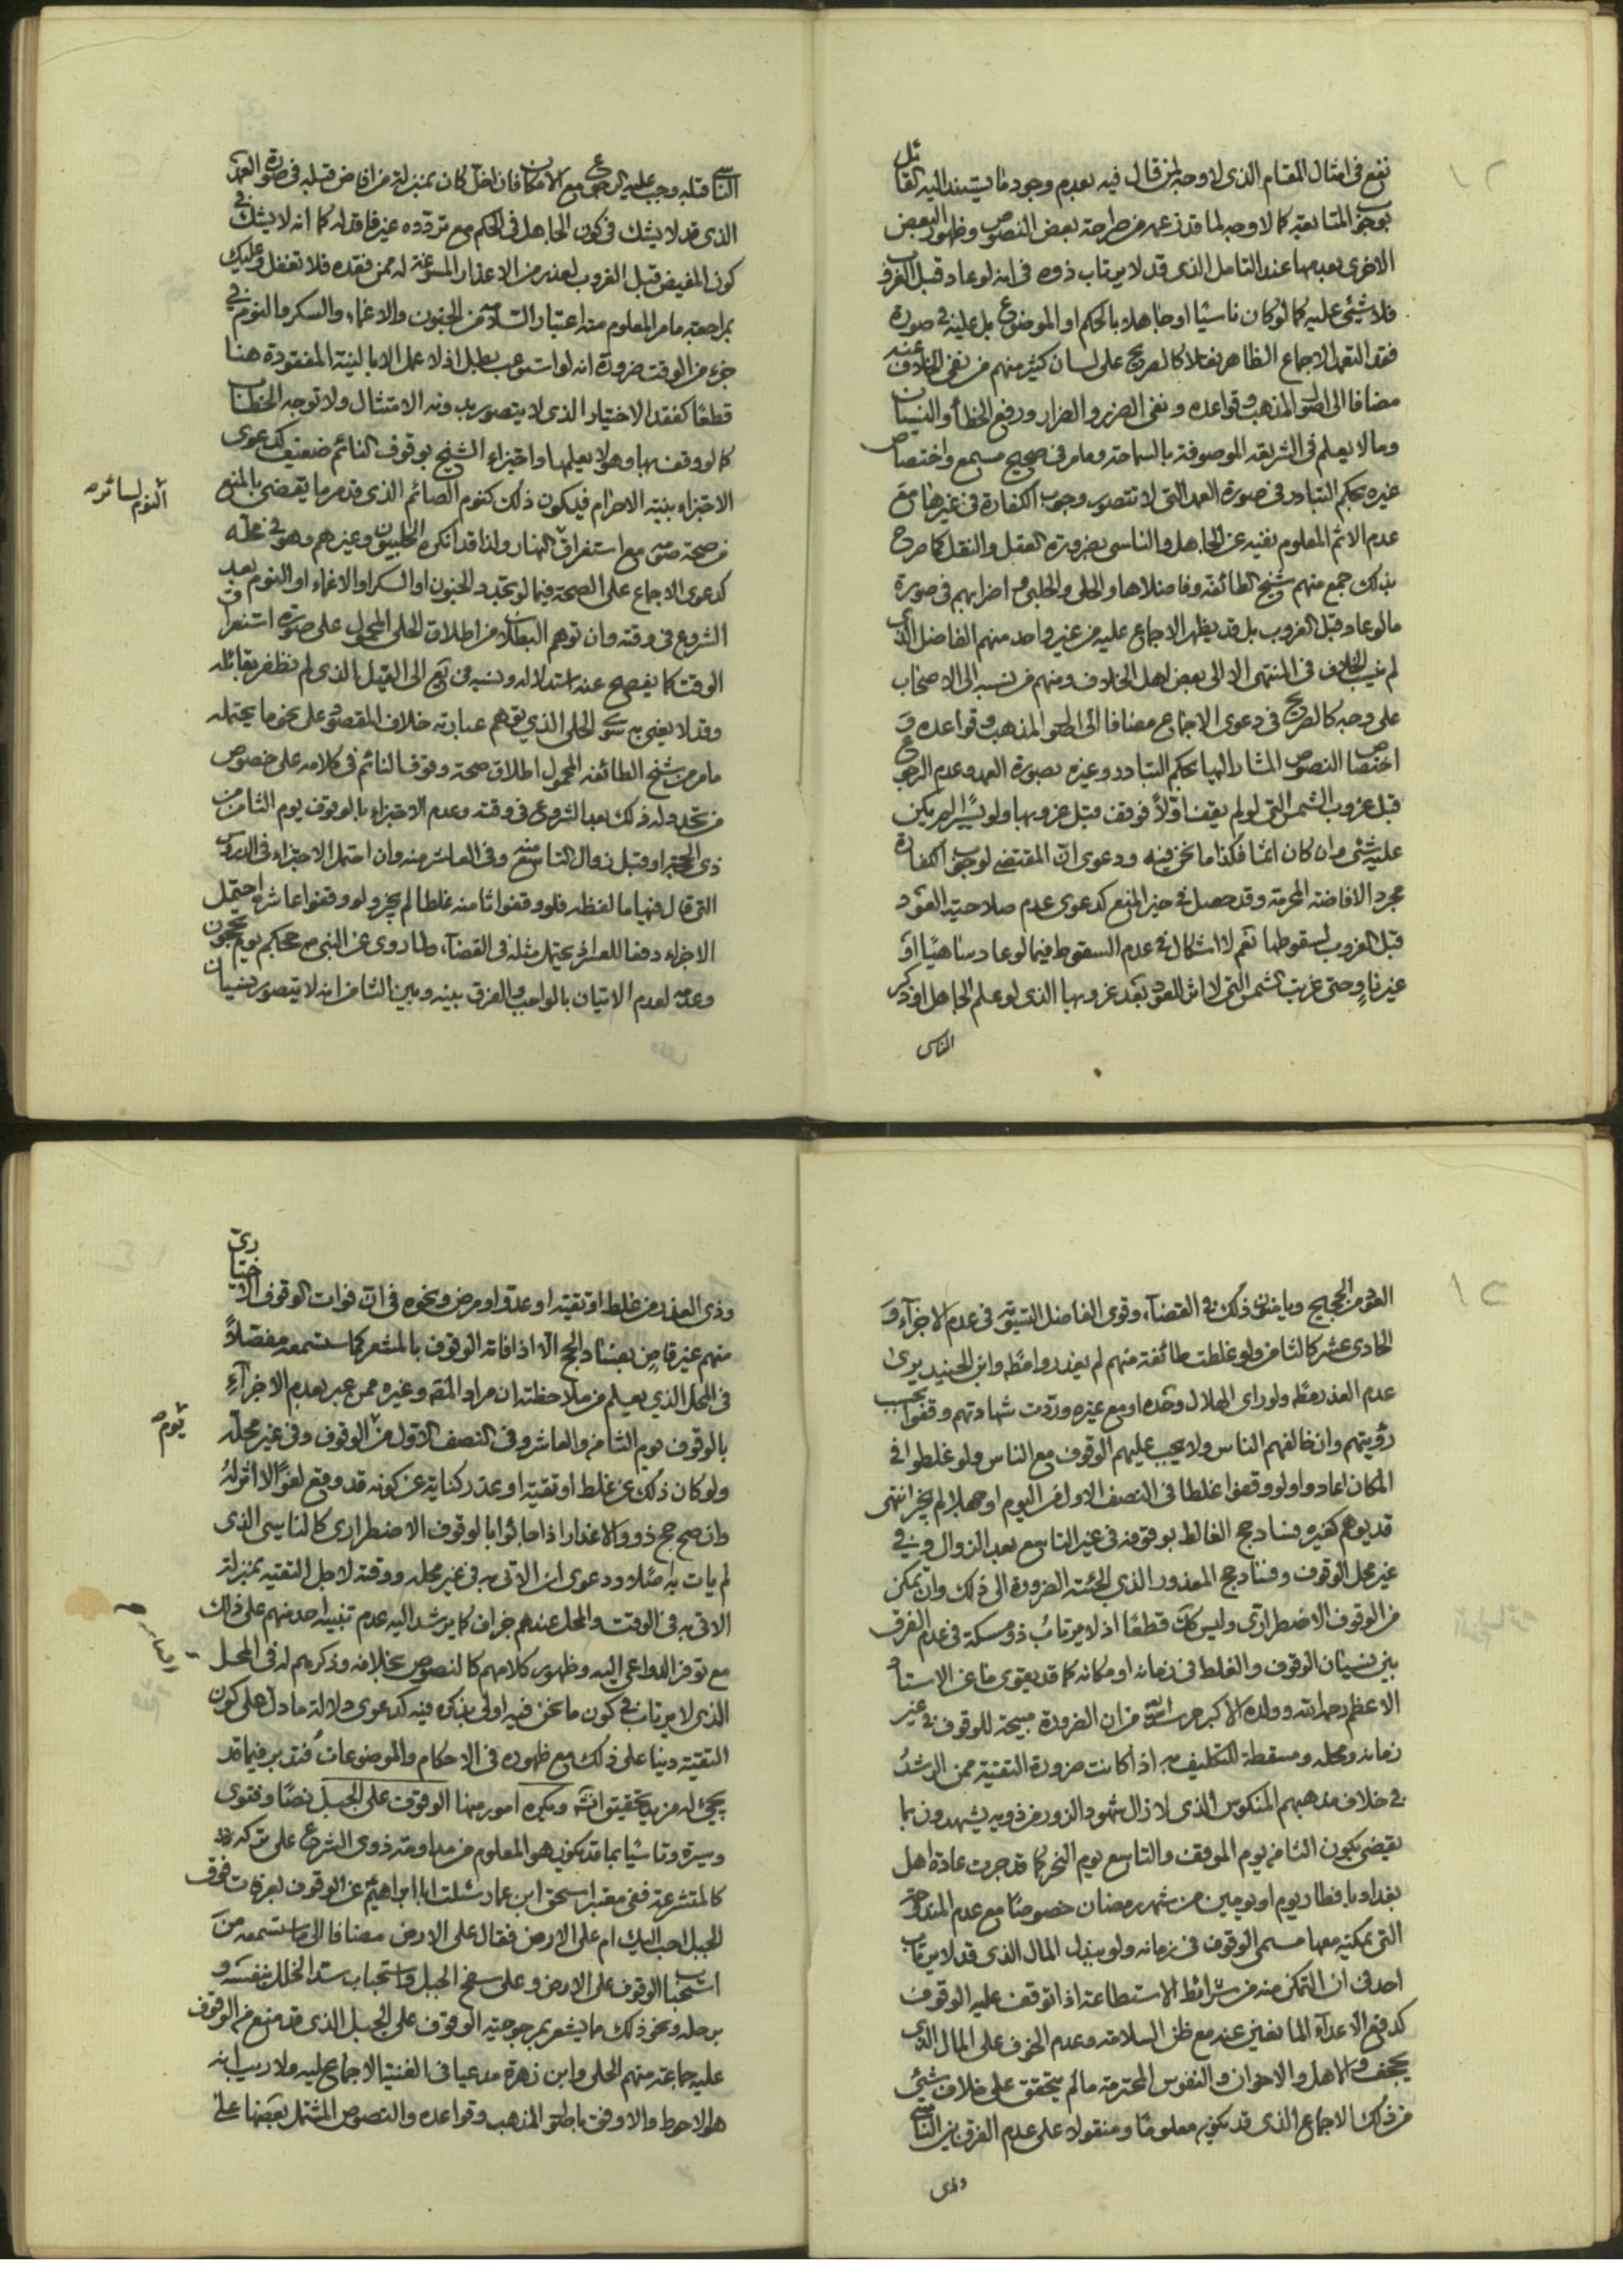 نفع فی امثال المقام الذی لا وجه لمن قال فیه بعدم وجود ما یستند الیه القائل
بوجوب المتابعة کما لا وجه لما قد زعمه من طراحة بعض النصوص وظهور البعض
الاخری بعدمها عند التامل الذی قد لا یرتاب ذوه فی انه لو عاد قبل الغروب
فلا شیئ علیه کما لو کان ناسیا او جاهلا بالحکم او الموضوع بل علیه فی صورة
فقد التعمد الاجماع الظاهر نقلا کالصریح علی لسان کثیر منهم من نفی الخلاف عنه
مضافا الی اصول المذهب وقواعده ونفی الضرر والضرار ورفع الخطأ والنسیان
وما لا یعلم فی الشریعة الموصوفة بالسماحة وما مر فی صحیح مسمع واختصاص
غیره بحکم التبادر فی صورة العمد التی لا تتصور وجوب الکفارة فی غیرها مع
عدم الاثم المعلوم نفیه عن الجاهل والناسی بضرورة العقل والنقل کما صرح
بذلک جمع منهم شیخ الطائفة وفاضلاها والحلی والحلبی و اضرابهم فی صورة
ما لو عاد قبل الغروب بل قد یظهر الاجماع علیه من غیر واحد منهم الفاضل الذی
لم ینسب الخلاف فی المنتهی الا الی بعض اهل الخلاف ومنهم من نسبه الی الاصحاب
علی وجه کالصریح فی دعوی الاجماع مضافا الی اصول المذهب وقواعده و
اختصاص النصوص المشار الیها بحکم التبادر وغیره بصورة العمد وعدم الرجوع
قبل غروب الشمس التی لو لم یقف اوّلاً فوقف قبل غروبها ولو یسیرا لم یکن
علیه شیئ وان کان اثما فکذا ما نحن فیه ودعوی انّ المقتضی لوجوب الکفارة
مجرد الافاضة المحرمة وقد حصل فی حیز المنع کدعوی عدم صلاحیة العود
قبل الغروب لسقوطها نعم لا اشکال فی عدم السقوط فیما لو عاد متناهیا او
غیر ناوٍ حتی غربت الشمس التی لا اثر للعود بعد غروبها الذی لو علم الجاهل او ذکر
الناسی
الناسی قبله وجب علیه الرجوع مع الامکان فان اخل کان بمنزلة من افاض قبله فی صورة العمد
الذی قد لا یشک فی کون الجاهل فی الحکم مع تردده غیر فاقد له کما انه لا یشک فی
کون المفیض قبل الغروب لعذر من الاعذار المسوغة له ممن فقده فلا تغفل وعلیک
بمراجعة ما مر المعلوم منه اعتبار السلامة من الجنون والاغماء والسکر والنوم فی
جزء من الوقت ضرورة انه لو استوعب بطل اذ لا عمل الا بالنیة المفقودة هنا
قطعًا کفقد الاختیار الذی لا یتصور بدونه الامتثال ولا توجه الخطاب
کما لو وقف بها وهو لا یعلمها واجتزاء الشیخ بوقوف النائم ضعیف کدعوی
الاجتزاء بنیة الاحرام فیکون ذلک کنوم الصائم الذی قد مر ما یقضی بالمنع
من صحة صومه مع استغراق النوم لسائر النهار ولذا قد انکره الحلبیون وغیرهم وهو فی محله
کدعوی الاجماع علی الصحة فیما لو تجدد الجنون او السکر او الاغماء او النوم بعد
الشروع فی وقته وان توهم البطلان من اطلاق الحلی المحمول علی صورة استغراق
الوقت کما یفصح عنه استدلاله ونسبه فی لک الی القیل الذی لم نظفر بقائله
وقد لا یعنی به سوی الحلی الذی یوهم عبارته خلاف المقصود علی نحو ما یحتمله
ما مر من شیخ الطائفة المحمول اطلاق صحة وقوف النائم فی کلامه علی خصوص
من تجدد له ذلک بعد الشروع فی وقته وعدم الاجتزاء بالوقوف یوم الثامن من
ذی الحجة او قبل زوال التاسع منه وفی العاشر منه وان احتمل الاجتزاء فی الدروس
التی قال فیها ما لفظه فلو وقفوا ثامنه غلطا لم یجز ولو وقفوا عاشره احتمل
الاجزاء دفعا للعسر اذ یحتمل مثله فی القضآء، ولما روی عن النبی ص حجکم یوم تحجون
وعدمه لعدم الاتیان بالواجب والفرق بینه وبین الثامن انه لا یتصور نسیان
النوم لسائر صح
العدد من الحجیج ویامنون ذلک فی القضآء، وقوی الفاضل التسویة فی عدم الاجزآء و
الحادی عشر کالثامن ولو غلطت طائفة منهم لم یعذروا مطلقا وابن الجنید یری
عدم العذر مطلقا ولو رای الهلال وحده او مع غیره وردّت شهادتهم وقفوا بحسب
رؤیتهم وان خالفهم الناس ولا یجب علیهم الوقوف مع الناس ولو غلطوا فی
المکان اعادوا ولو وقفوا غلطا فی النصف الاول من الیوم او جهلا لم یجز انتهی
قد یوهم کغیره فساد حج الغالط بوقوفه فی غیر التاسع بعد الزوال وفی
غیر محل الوقوف وفساد حج المعذور الذی الجئته الضرورة الی ذلک وان تمکن
من الوقوف الاضطراری ولیس کک قطعًا اذ لا یرتاب ذو مسکة فی عدم الفرق
بین نسیان الوقوف والغلط فی زمانه او مکانه کما قد یقوی ما عن الاستاد
الاعظم رحمه الله وولده الاکبر حرسه الله من ان الضرورة مبیحة للوقوف فی غیر
زمانه ومحله ومسقطة للتکلیف به اذا کانت ضرورة التقیة ممن الرشد
فی خلاف مذهبهم المنکوس الذی لا زال شهود الزور من ذویه یشهدون بما
یقضی بکون الثامن یوم الموقف والتاسع یوم النحر کما قد جرت عادة اهل
بغداد بافطار یوم او یومین من شهر رمضان خصوصًا مع عدم المندوحة
التی یمکنه معها مسمی الوقوف فی زمانه ولو ببذل المال الذی قد لا یرتاب
احد فی ان التمکن منه من شرائط الاستطاعة اذا توقف علیه الوقوف
کدفع الاعدآء المانعین عنه مع ظن السلامة وعدم الخوف علی المال الذی
یجحف والاهل والاخوان والنفوس المحترمة ما لم یتحقق علی خلاف شیئ
من ذلک الاجماع الذی قد یکون معلومًا ومنقولا علی عدم الفرق بین الناسی
وذی
وذی العذر من غلط او تقیة او عدو او مرض ونحوه فی انّ فوات الوقوف الاختیاری
منهم غیر قاض بفساد الحج الا اذا فاته الوقوف بالمشعر کما ستسمعه مفصّلاً
فی المحل الذی یعلم من ملاحظته ان مراد المصنف وغیره ممن عبر بعدم الاجزآء
بالوقوف یوم الثامن والعاشر وفی النصف الاول من یوم الوقوف وفی غیر محلّه
ولو کان ذلک عن غلط او تقیة او عذر کنایة عن کونه قد وقع لغوًا لا اثر لهُ
وان صح حج ذوو الاعذار اذا جائوا بالوقوف الاضطراری کالناسی الذی
لم یات به اصلا ودعوی ان الاتی به فی غیر محله ووقته لاجل التقیة بمنزلة
الاتی به فی الوقت والمحل عندهم جزاف کما یرشد الیه عدم تنبیه احد منهم علی ذلک
مع توفر الدواعی الیه وظهور کلامهم کالنصوص بخلافه وذکرهم له فی المحل
الذی لا یرتاب فی کون ما نحن فیه اولی بذکره فیه کدعوی دلالة ما دل علی کون
التقیة دینا علی ذلک مع ظهوره فی الاحکام والموضوعات فتدبر فیما قد
یجیئ له مزید تحقیق انشآء ویکره امور منها الوقوف علی الجبل نصًا وفتوی
وسیرة وتاسّیا بما قد یکون هو المعلوم من مداومة ذوی الشرع علی ترکه
کالمتشرعة ففی معتبر اسحق ابن عمار سئلت ابا ابراهیم ع عن الوقوف بعرفات فوق
الجبل احب الیک ام علی الارض فقال علی الارض مضافا الی ما ستسمعه من
استحباب الوقوف علی الارض وعلی سفح الجبل واستحباب سد الخلل بنفسه و
برحله ونحو ذلک مما یشعر بمرجوحیة الوقوف علی الجبل الذی قد منع من الوقوف
علیه جماعة منهم الحلی وابن زهرة مدعیا فی الغنیة الاجماع علیه ولا ریب انه
هو الاحوط والاوفق باصول المذهب وقواعده والنصوص المشتمل بعضها علی
یوم صح